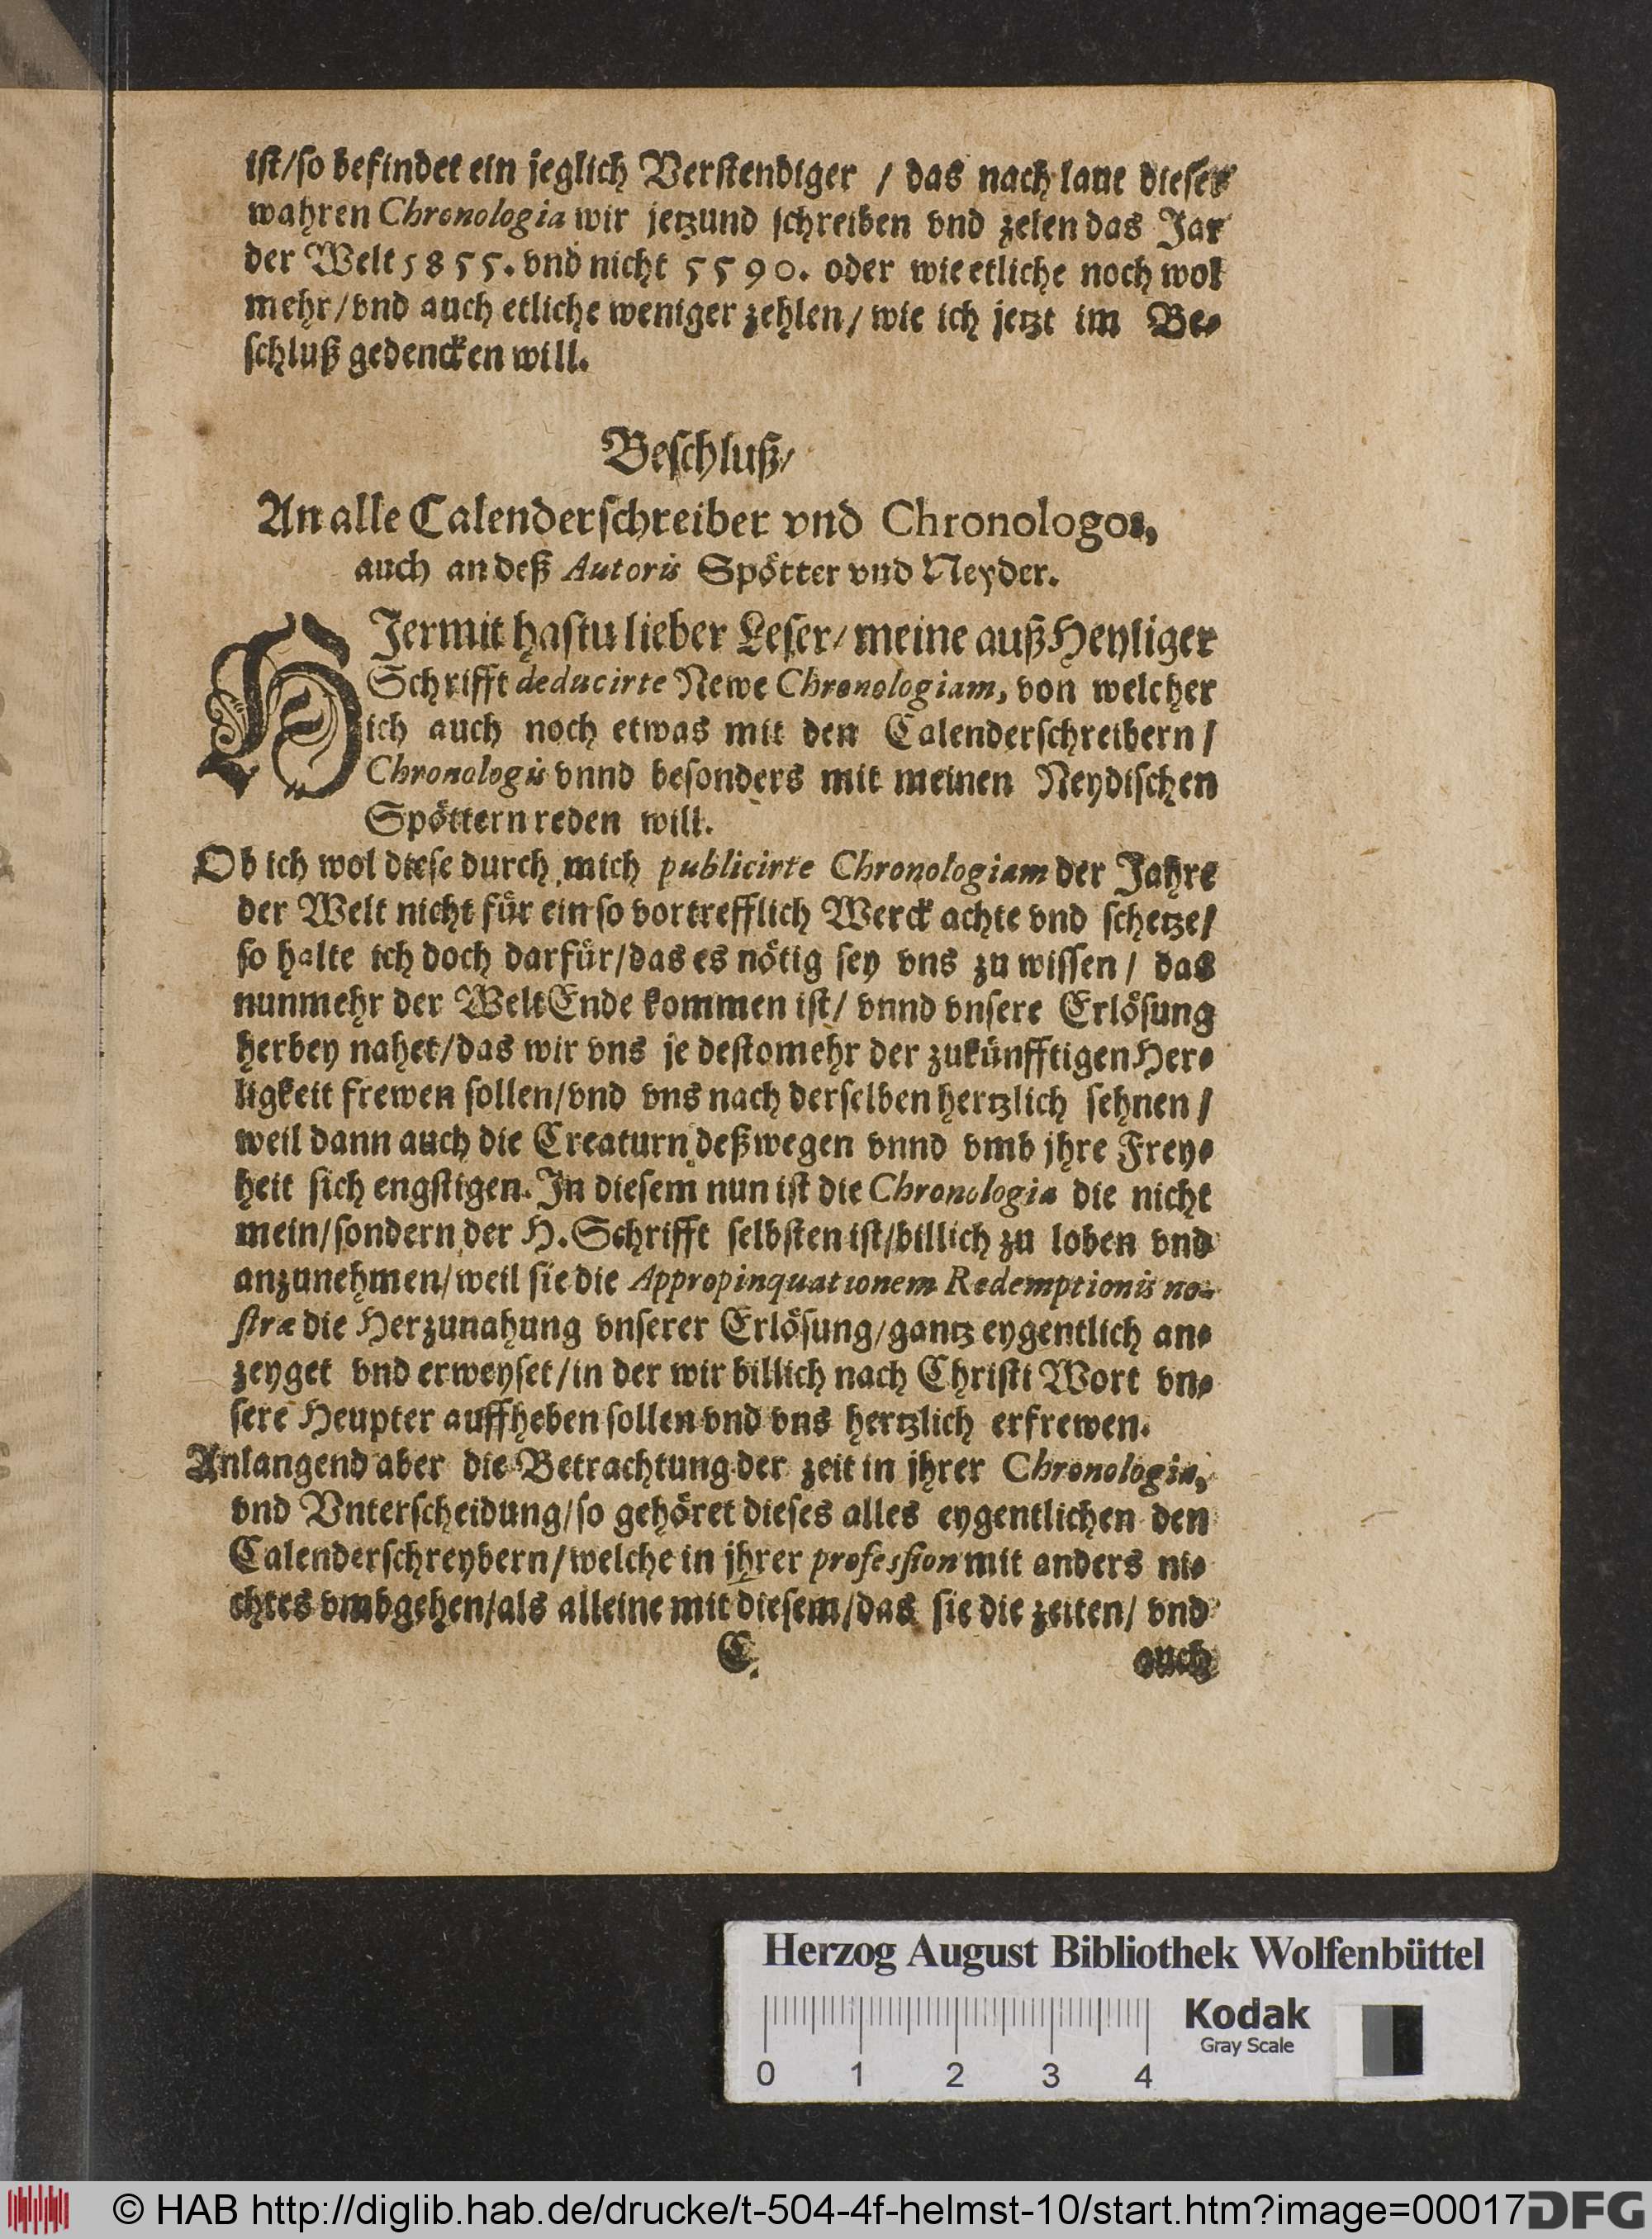 ist/so befindet ein jeglich Verstendiger / das nach laut dieser
wahren Chronologia wir jetzund schreiben vnd zelen das Jar
der Welt 5855. vnd nicht 5590. oder wie etliche noch wol
mehr/vnd auch etliche weniger zehlen/ wie ich jetzt im Be-
schluß gedencken will.
Beschluß/
An alle Calenderschreiber vnd Chronologos,
auch an deß Autoris Spötter vnd Neyder.
HJermit hastu lieber Leser/ meine auß Heyliger
Schrifft deducirte Newe Chronologiam, von welcher
ich auch noch etwas mit den Calenderschreibern/
Chronologis vnnd besonders mit meinen Neydischen
Spöttern reden will.
Ob ich wol diese durch mich publicirte Chronologiam der Jahre
der Welt nicht für ein so vortrefflich Werck achte vnd schetze/
so halte ich doch darfür/das es nötig sey vns zu wissen/ das
nunmehr der Welt Ende kommen ist/ vnnd vnsere Erlösung
herbey nahet/das wir vns je destomehr der zukünfftigen Her-
ligkeit frewen sollen/vnd vns nach derselben hertzlich sehnen/
weil dann auch die Creaturn deßwegen vnnd vmb jhre Frey-
heit sich engstigen. Jn diesem nun ist die Chronologia die nicht
mein/sondern der H. Schrifft selbsten ist/billich zu loben vnd
anzunehmen/weil sie die Appropinquationem Redemptionis no-
stræ die Herzunahung vnserer Erlösung/gantz eygentlich an-
zeyget vnd erweyset/in der wir billich nach Christi Wort vn-
sere Heupter auffheben sollen vnd vns hertzlich erfrewen.
Anlangend aber die Betrachtung der zeit in jhrer Chronologia,
vnd Vnterscheidung/so gehöret dieses alles eygentlichen den
Calenderschreybern/welche in jhrer profession mit anders ni-
chtes vmbgehen/als alleine mit diesem/das sie die zeiten/ vnd
C. auch
Herzog August Bibliothek Wolfenbüttel
Kodak
Gray Scale
0 1 2 3 4
© HAB http://diglib.hab.de/drucke/t-504-4f-helmst-10/start.htm?image=00017 DFG